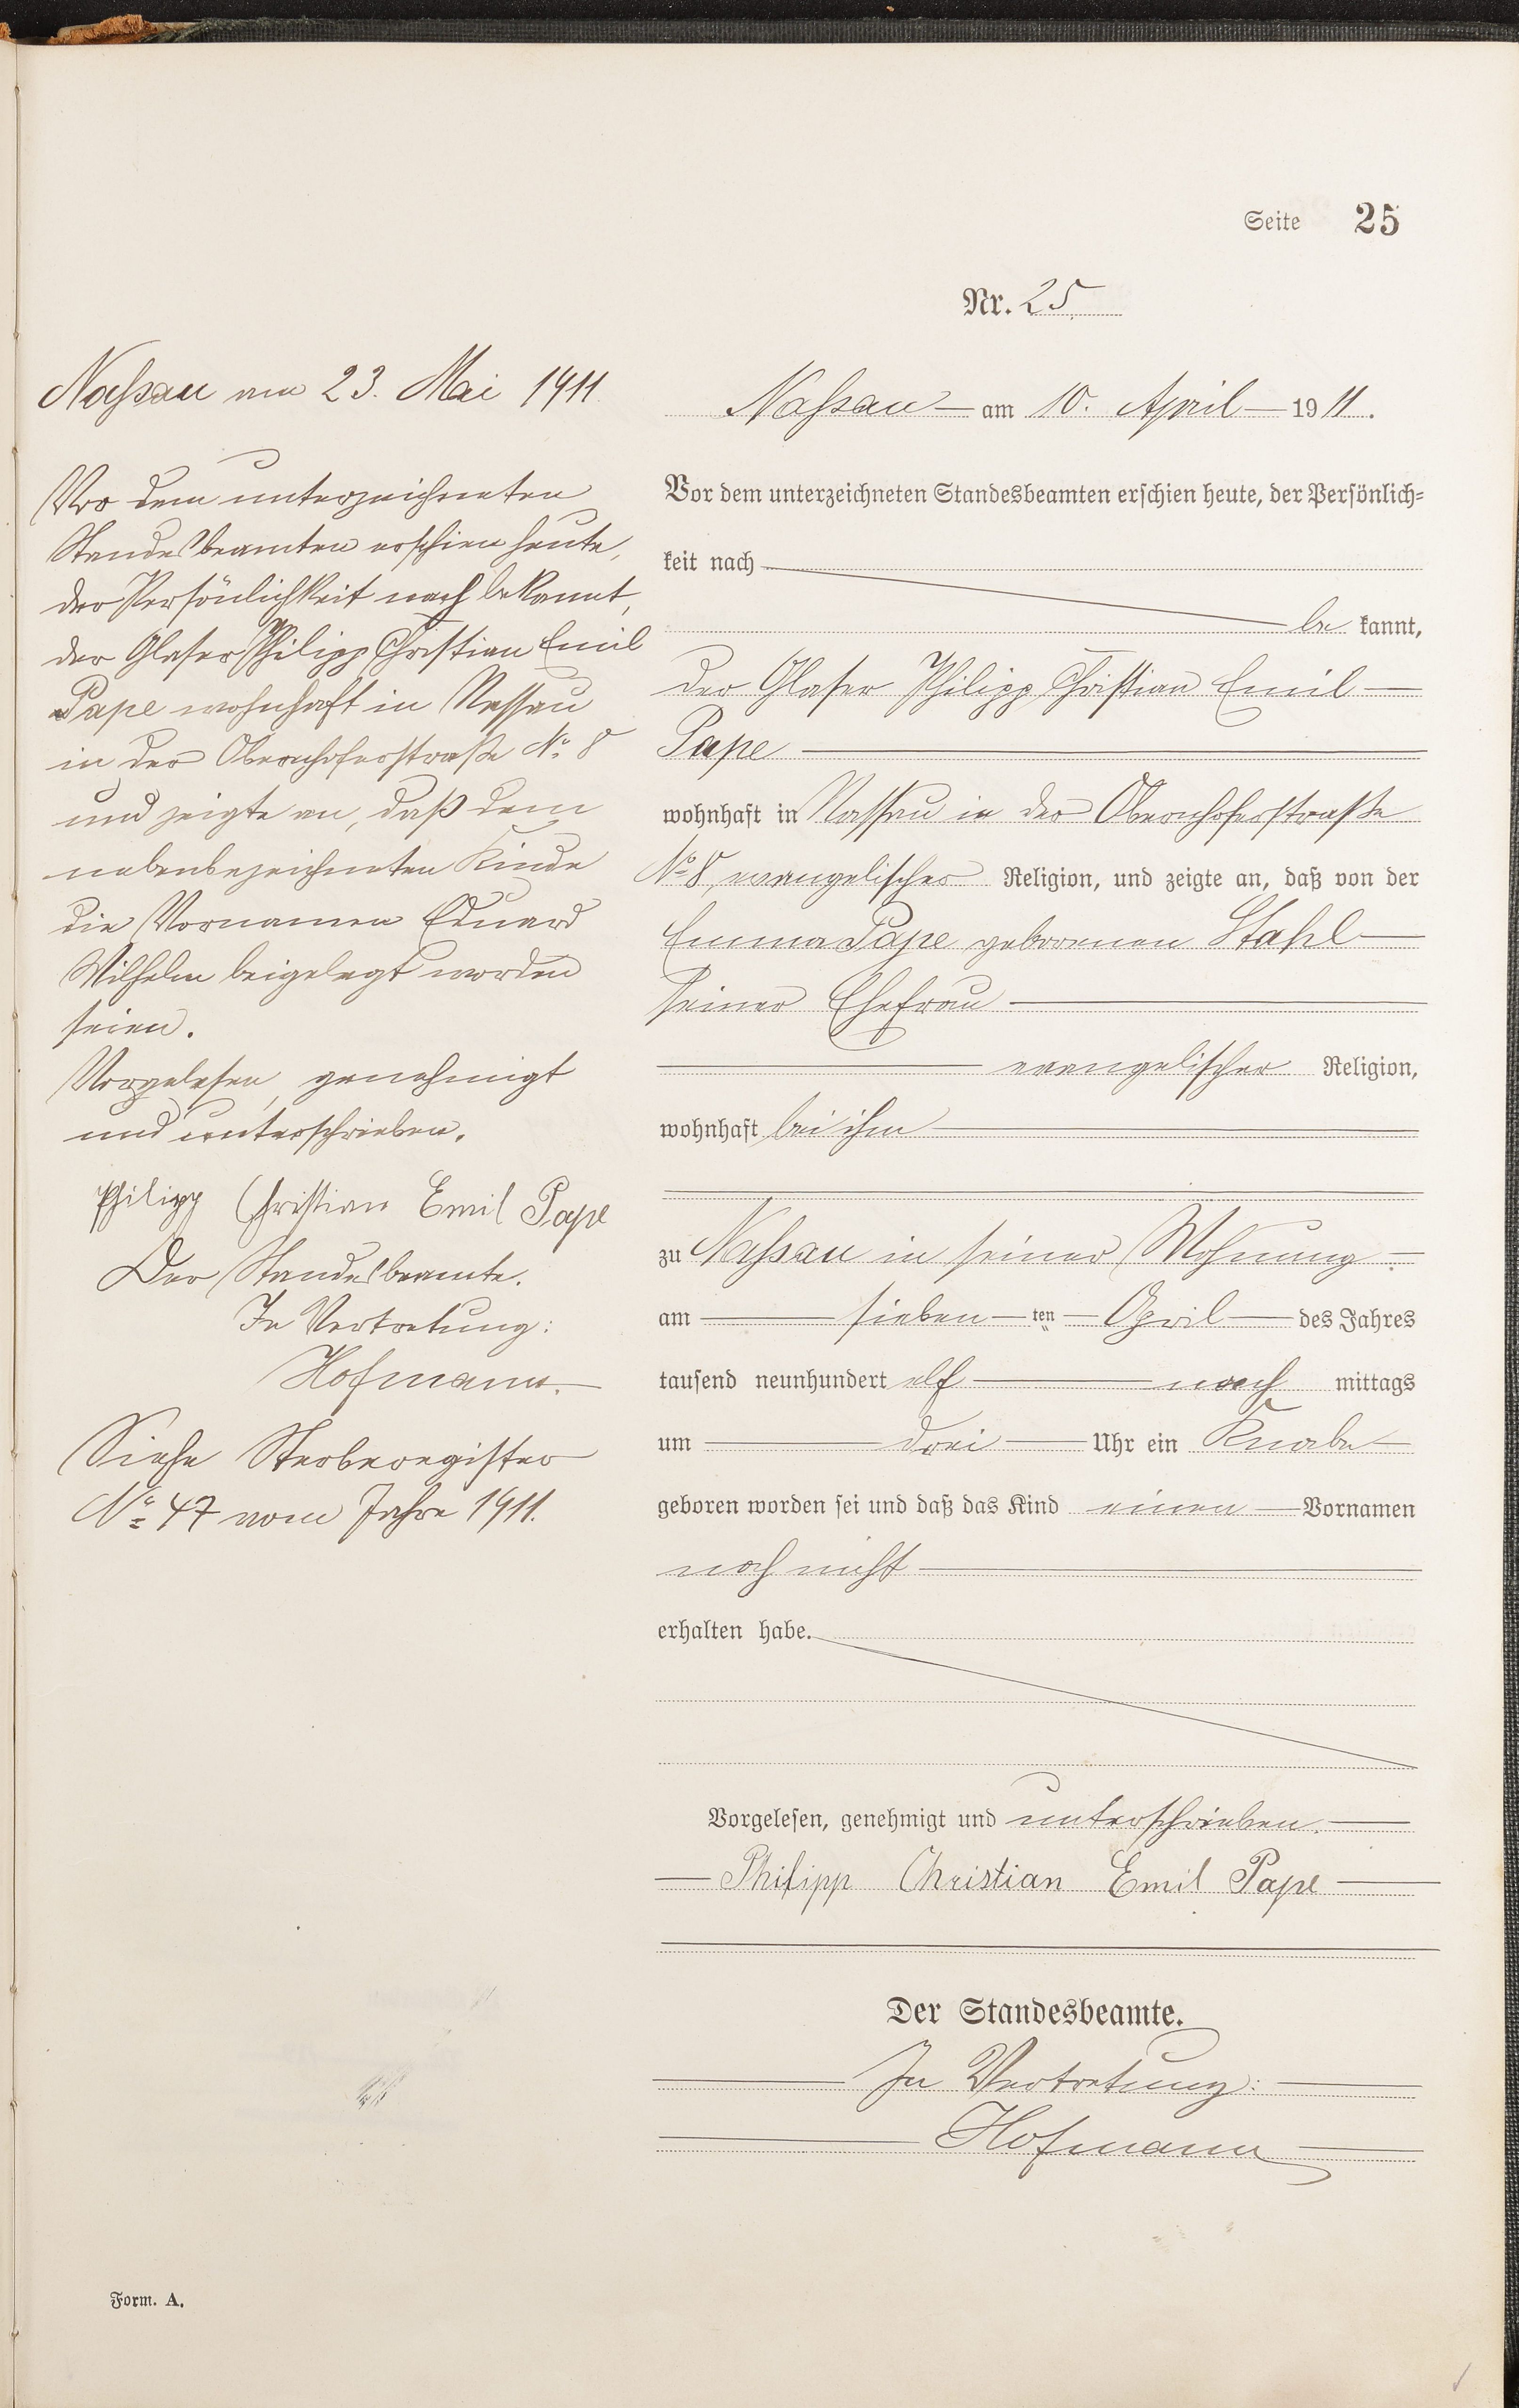 Seite 25
Nr. 25.
Naßsau am 23. Mai 1911
Vor dem unterzeichneten
Standesbeamten erschien heute,
der Persönlichkeit nach bekannt,
der Glaser Philipp Christian Emil
Pape wohnhaft in Nassau
in der Obernhoferstraße No. 8
und zeigte an, daß dem
nebenbezeichneten Kinde
die Vornamen Eduard
Wilhelm beigelegt worden
seien.
Vorgelesen, genehmigt
und unterschrieben.
Philipp Christian Emil Pape
Der Standesbeamte.
In Vertretung:
Hofmann.
Siehe Sterberegister
No. 47 vom Jahre 1911.
Naßsau am 10. April 1911.
Vor dem unterzeichneten Standesbeamten erschien heute, der Persönlich-
keit nach
be kannt,
der Glaser Philipp Christian Emil
Pape
wohnhaft in Nassau in der Obernhoferstraße
No. 8, evangelischer Religion, und zeigte an, daß von der
Emma Pape geborenen Stahl
seiner Ehefrau
evangelischer Religion,
wohnhaft bei ihm
zu Naßsau in seiner Wohnung
am sieben ten April des Jahres
tausend neunhundert elf nach mittags
um drei Uhr ein Knabe
geboren worden sei und daß das Kind einen Vornamen
noch nicht
erhalten habe.
Vorgelesen, genehmigt und unterschrieben.
Philipp Christian Emil Pape
Der Standesbeamte.
In Vertretung:
Hofmann
Form. A.